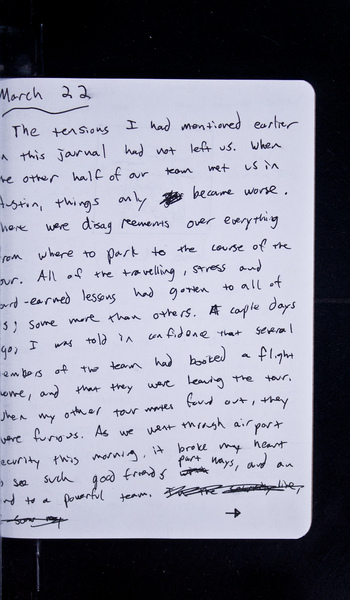 March 22
The tensions I had mentioned earlier
n this journal had not left us. When
he other half of our team met us in
ustin, things only became worse.
here were disagreements over everything
rom where to park to the course of the
our. All of the travelling, stress and
ard-earned lessons had gotten to all of
s; some more than others. A couple days
go, I was told in confidence that several
embers of the team had booked a flight
ome, and that they were leaving the tour.
hen my other tour mates found out, they
ere furious. As we went through airport
ecurity this morning, it broke my heart
o see such good friends part ways, and an
nd to a powerful team.
→